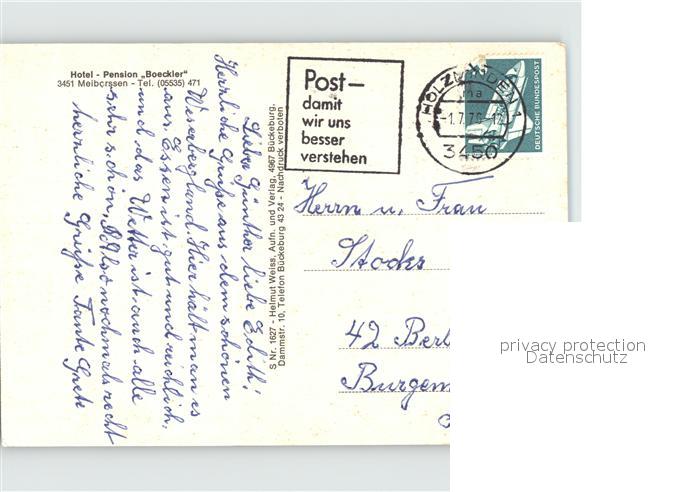 Hotel - Pension „Boeckler"
3451 Meiborssen - Tel. (05535) 471
Lieber Günther, liebe Edith!
Herrliche Grüße aus dem schönen
Weserbergland. Hier hält man es
aus. Essen ist gut und reichlich,
und das Wetter ist auch alle
sehr schön. Also nochmals recht
herzliche Grüße Tante Grete
S Nr. 1627 - Helmut Weiss, Aufn. und Verlag, 4967 Bückeburg,
Dammstr. 10, Telefon Bückeburg 43 24 - Nachdruck verboten
Post—
damit
wir uns
besser
verstehen
HOLZMINDEN 1
ma
-1.7.76-12
3450
DEUTSCHE BUNDESPOST
Herrn u. Frau
Stocks
42 Berl
Burgem
privacy protection
Datenschutz